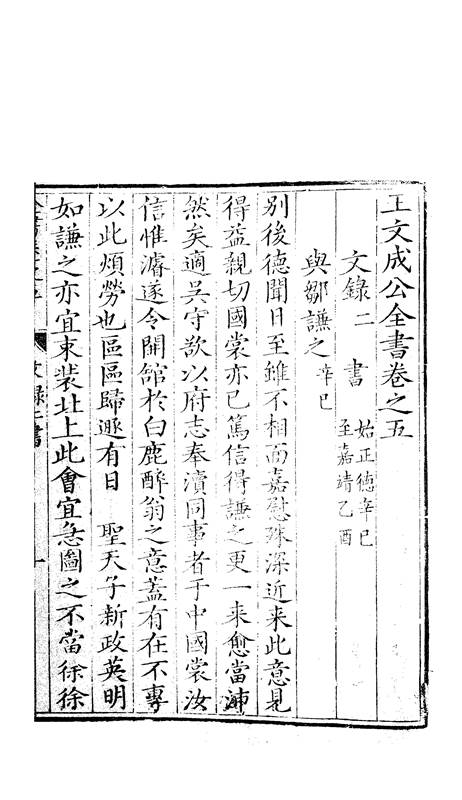 王文成公全書卷之五
文錄二　書　始正德辛巳
至嘉靖乙酉
與鄒謙之　辛巳
別後德聞日至雖不相面嘉慰殊深近來此意見
得益親切國裳亦已篤信得謙之更一來愈當沛
然矣適吳守欲以府志奉瀆同事者于中國裳汝
信惟濬遂令開館於白鹿醉翁之意蓋有在不專
以此煩勞也區區歸遯有日　聖天子新政英明
如謙之亦宜束裝北上此會宜急圖之不當徐徐
文錄二書　一